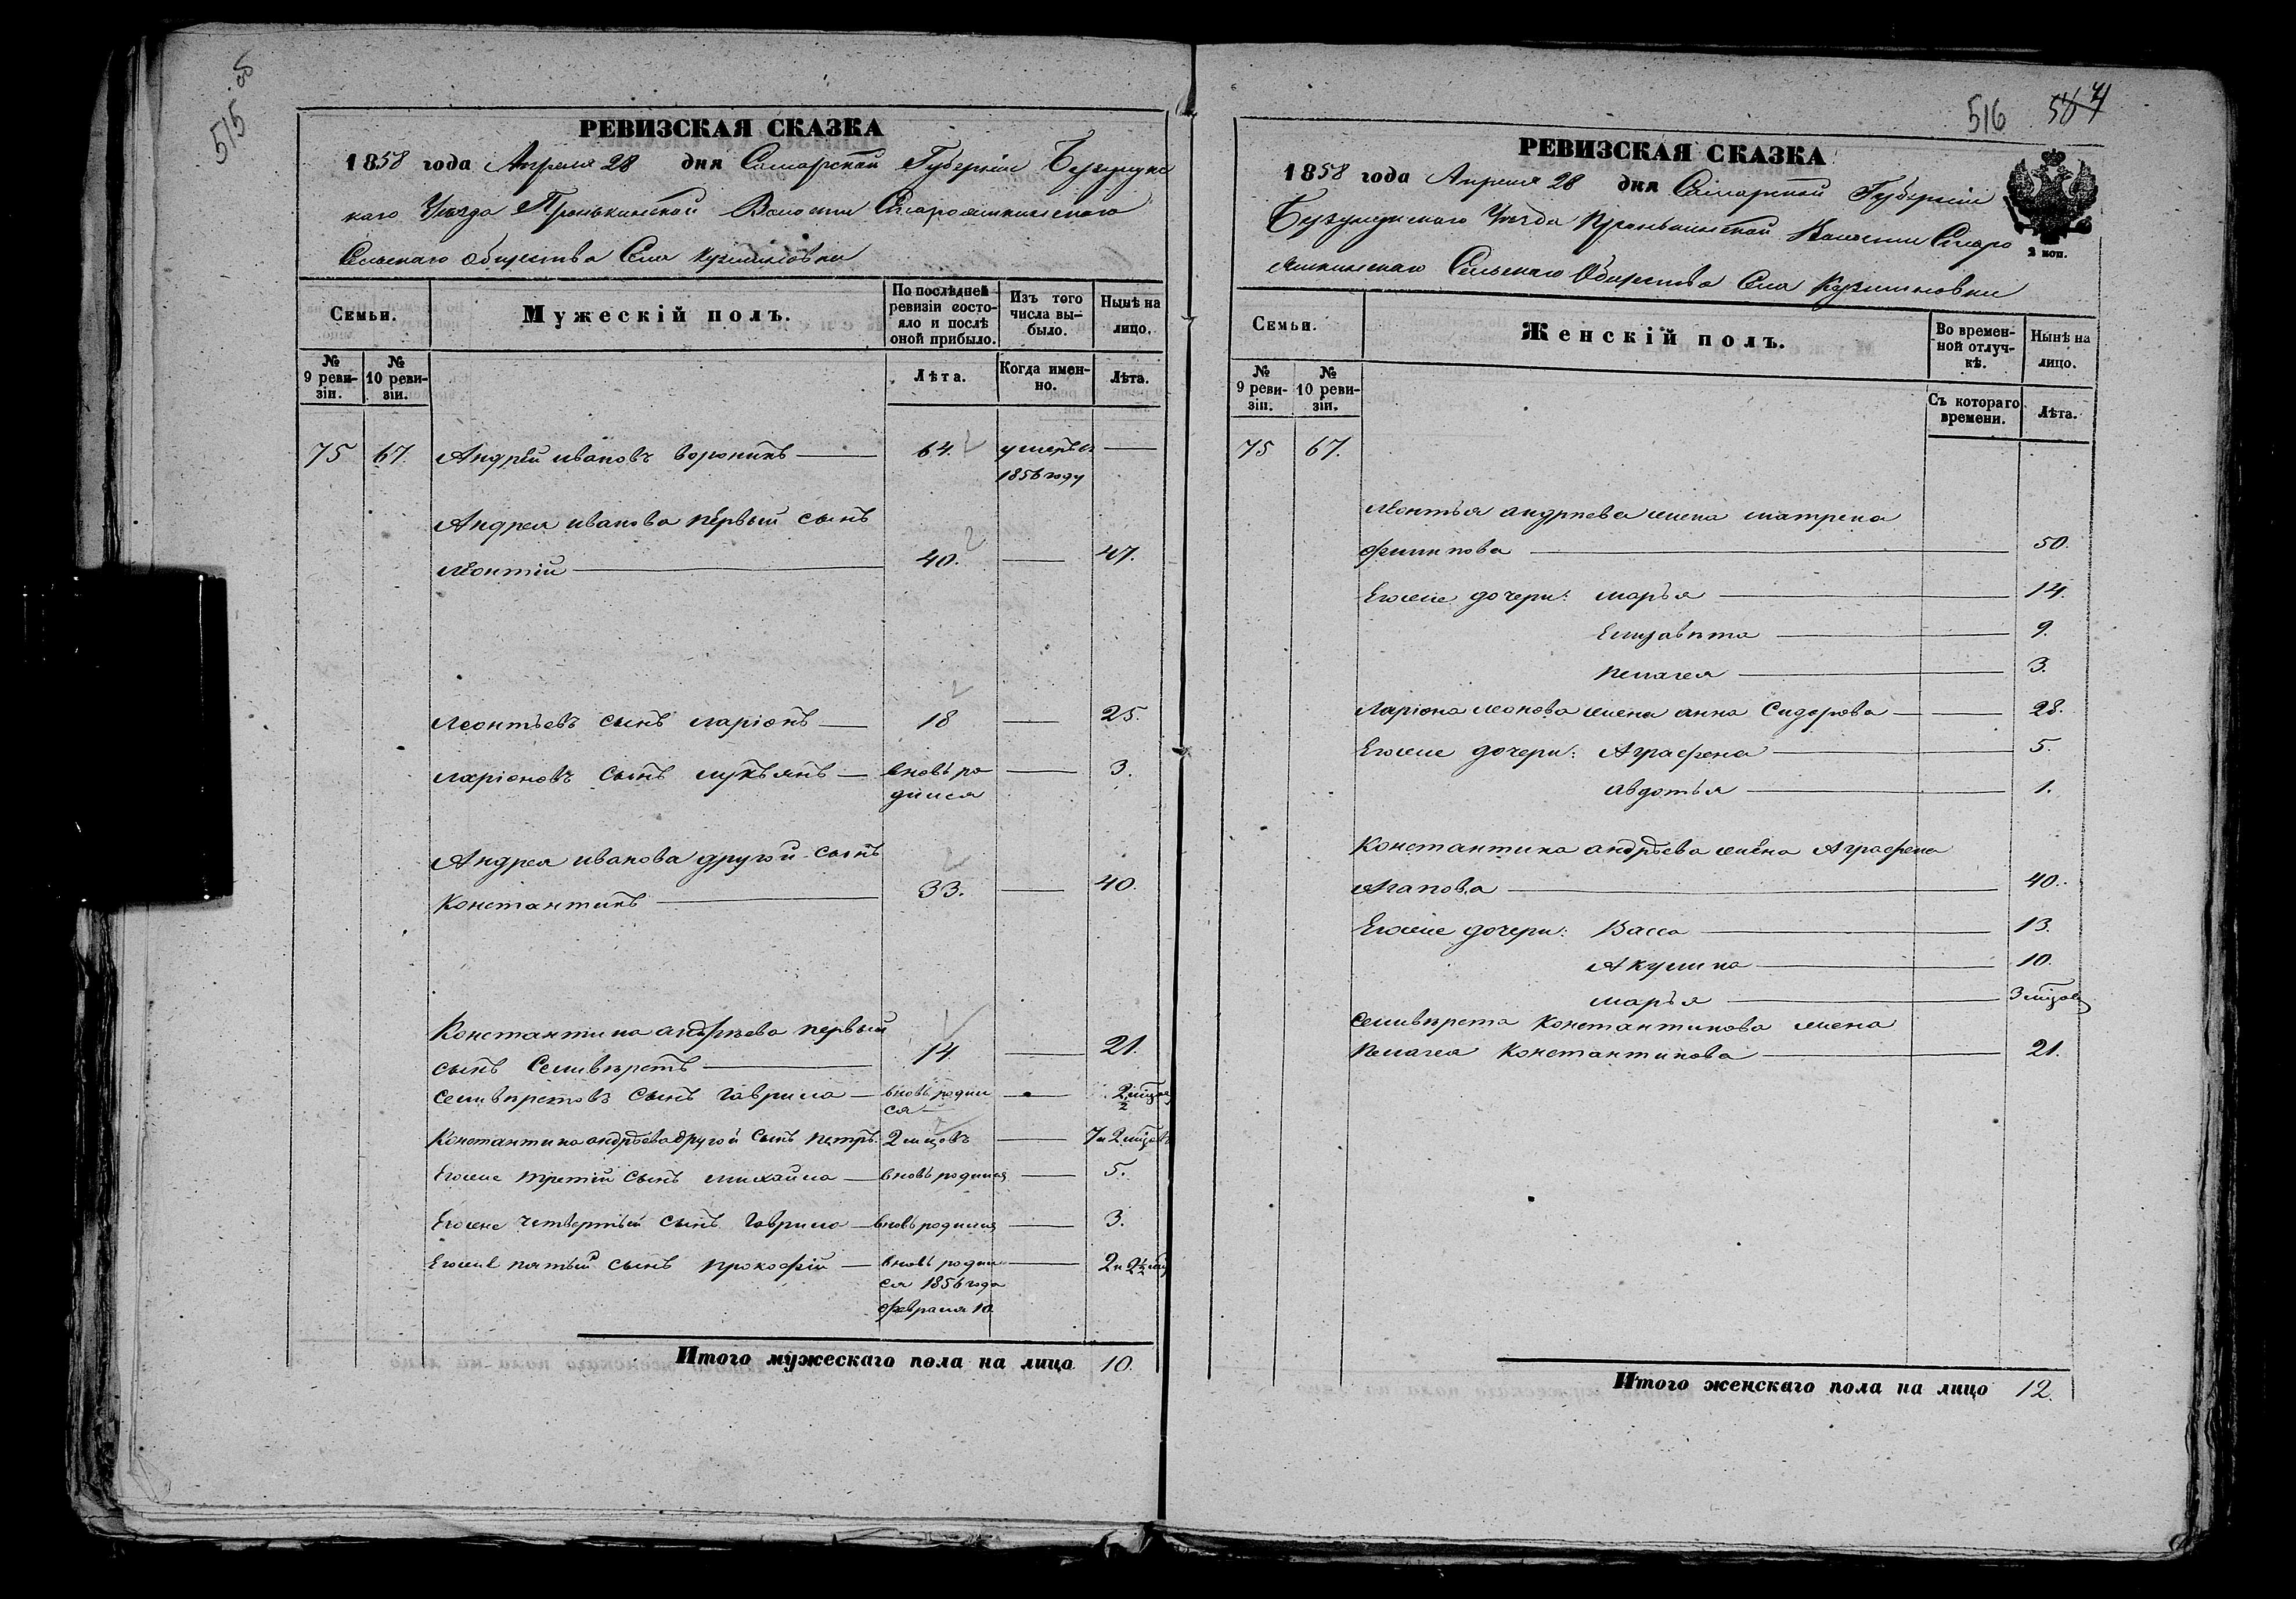 515 об
РЕВИЗСКАЯ СКАЗКА
1858 года Апреля 28 дня Самарской Губерніи Бузулукс
каго Уѣзда Пронькинской Волости Староашкинскаго
Сельскаго Общества Села Кузминовки
Семьи.
Мужескій полъ.
По послѣдней ревизіи состояло и послѣ оной прибыло.
Изъ того числа выбыло.
Нынѣ на лицо.
№ 9 ревизіи.
№ 10 ревизіи.
Лѣта.
Когда именно.
Лѣта.
75 67. Андрей ивановъ воронинъ 64. умеръ въ
1856 году
Андрея иванова первый сынъ
леонтій 40. 47.
леонтьевъ сынъ ларіонъ 18 25.
ларіоновъ сынъ лукьянъ вновь ро 3.
дился
Андрея иванова другой сынъ
Константинъ 33. 40.
Константина андрѣева первый
сынъ Селивѣрстъ 14 21.
Селивѣрстовъ сынъ Гаврила вновь родил
ся
Константина андрѣева другой сынъ петръ. 2 мцовъ 7 и 2 мцовъ
Егоже третій сынъ михайла вновь родился 5.
Егоже четвертый сынъ Гаврила вновь родился 3.
Егоже пятый сынъ прокофій вновь родил 2 и 2½ мц
ся 1856 года
февраля 10
Итого мужескаго пола на лицо 10.
516
РЕВИЗСКАЯ СКАЗКА
1858 года Апреля 28 дня Самарской Губерніи
Бузулукскаго Уѣзда Пронькинской Волости Старо
ашкинскаго Сельскаго Общества Села Кузминовки
2 коп.
Семьи.
Женскій полъ.
Во временной отлучкѣ.
Нынѣ на лицо.
№ 9 ревизіи.
№ 10 ревизіи.
Съ котораго времени.
Лѣта.
75 67.
леонтья андрѣева жена матрена
филипова 50.
Егоже дочери: марья 14.
Елизавѣта 9.
пелагея 3.
ларіона леонова жена анна Сидорова 28.
Егоже дочери: Аграфена 5.
авдотья 1.
Константина андрѣева жена Аграфена
Агапова 40.
Егоже дочери: Васса 13.
Акулина 10.
марья 3 мцовъ
Селивѣрста Константинова жена
Пелагея Константинова 21.
Итого женскаго пола на лицо 12.